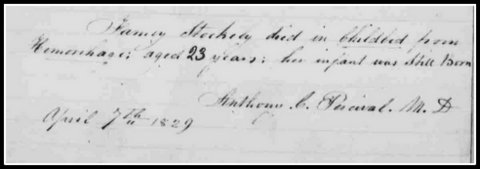 Fanny Stockely died in Childbed from
Hemorrhage; aged 23 years; her infant was Still Born
Anthony C. Percival. M. D
April 7th 1829